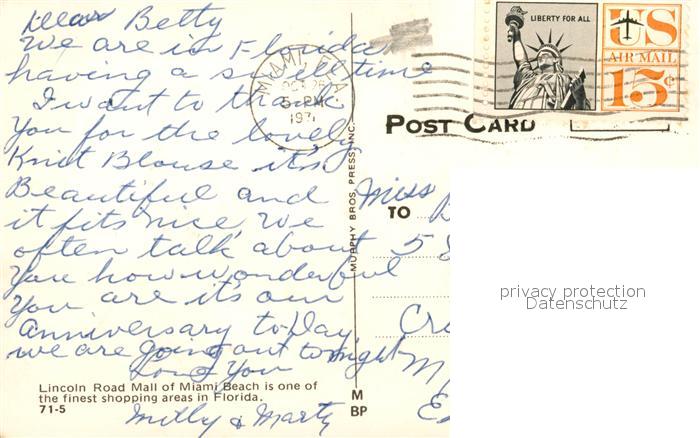 Dear Betty
We are in Florida
having a swell time
I want to thank
You for the lovely
Knit Blouse it's
Beautiful and
it fits nice, We
often talk about
You how wonderful
You are it's our
Anniversary to-Day
we are going out tonight
Love You
Milly & Marty
Lincoln Road Mall of Miami Beach is one of
the finest shopping areas in Florida.
71-5
MURPHY BROS. PRESS, INC.
M
BP
MIAMI, FLA.
OCT 26
5-PM
1971
LIBERTY FOR ALL
US
AIR MAIL
15¢
POST CARD
Miss B
TO
58
Cr
M
E
privacy protection
Datenschutz